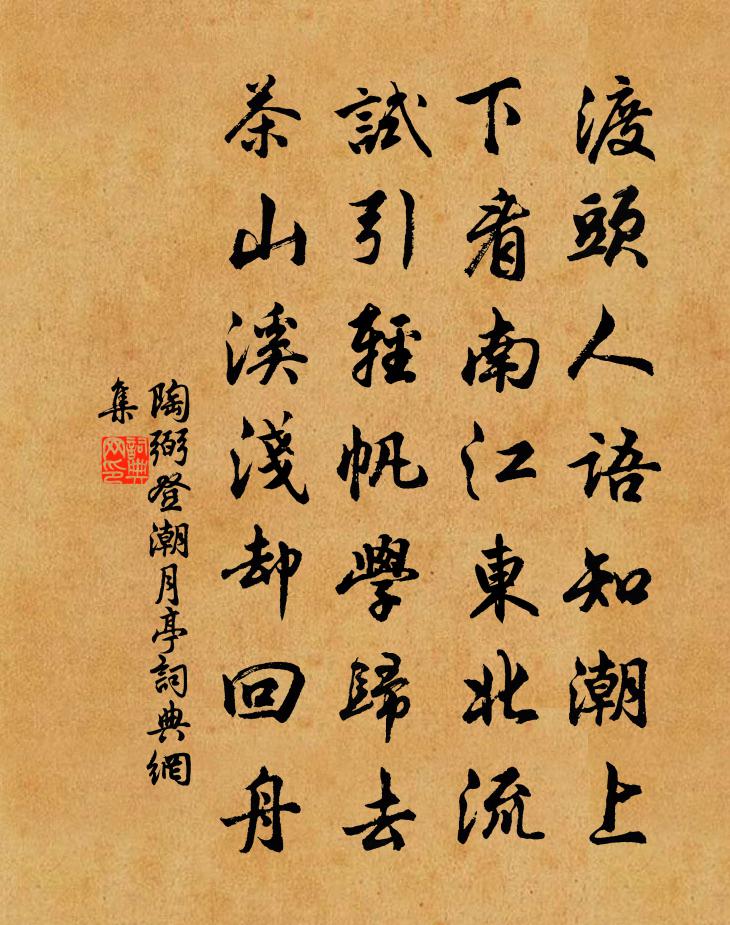 渡頭人語知潮上
下看南江東北流
試引輕帆學歸去
茶山溪淺却回舟
陶弼登潮月亭詞典網
集
詞典網印